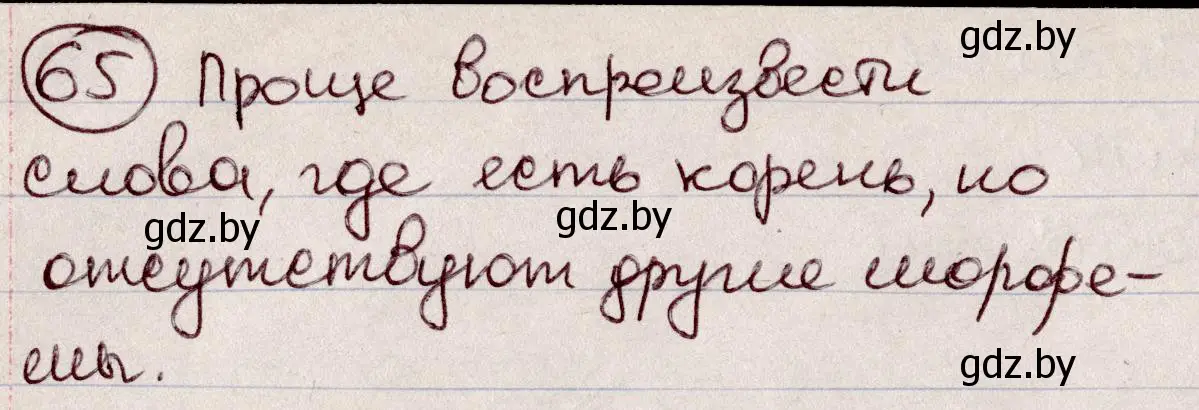 gdz.by
65 Проще воспроизвести
слова, где есть корень, но
gdz.by gdz.by
отсутствуют другие морфе-
мы.
gdz.by